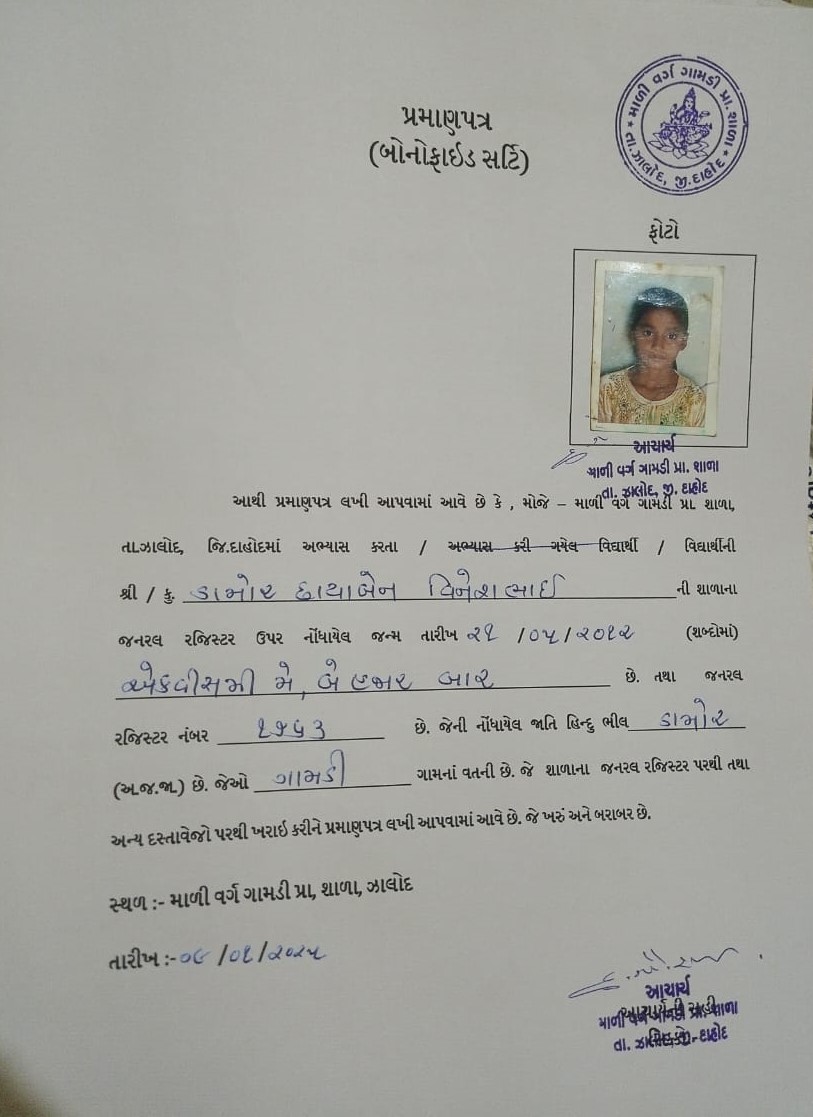 પ્રમાણપત્ર
(બોનોફાઇડ સર્ટિ)
* માળી વર્ગ ગામડી પ્રા. શાળા * તા.ઝાલોદ, જી.દાહોદ
ફોટો
આચાર્ય
માળી વર્ગ ગામડી પ્રા. શાળા
તા. ઝાલોદ, જી. દાહોદ
આથી પ્રમાણપત્ર લખી આપવામાં આવે છે કે , મોજે – માળી વર્ગ ગામડી પ્રા. શાળા,
તા.ઝાલોદ, જિ.દાહોદમાં અભ્યાસ કરતા / અભ્યાસ કરી ગયેલ વિદ્યાર્થી / વિદ્યાર્થીની
શ્રી / કુ. ડામોર છાયાબેન દિનેશભાઈ ની શાળાના
જનરલ રજિસ્ટર ઉપર નોંધાયેલ જન્મ તારીખ ૨૧ /૦૫/૨૦૧૨ (શબ્દોમાં)
એકવીસમી મે, બે હજાર બાર છે. તથા જનરલ
રજિસ્ટર નંબર ૧૭૬૩ છે. જેની નોંધાયેલ જાતિ હિન્દુ ભીલ ડામોર
(અ.જ.જા.) છે. જેઓ ગામડી ગામનાં વતની છે. જે શાળાના જનરલ રજિસ્ટર પરથી તથા
અન્ય દસ્તાવેજો પરથી ખરાઇ કરીને પ્રમાણપત્ર લખી આપવામાં આવે છે. જે ખરું અને બરાબર છે.
સ્થળ :- માળી વર્ગ ગામડી પ્રા, શાળા, ઝાલોદ
તારીખ :- ૦૯/૦૧/૨૦૨૫
આચાર્ય
આચાર્યની સહી
માળી વર્ગ ગામડી પ્રા. શાળા
તા. ઝાલોદ, જી. દાહોદ